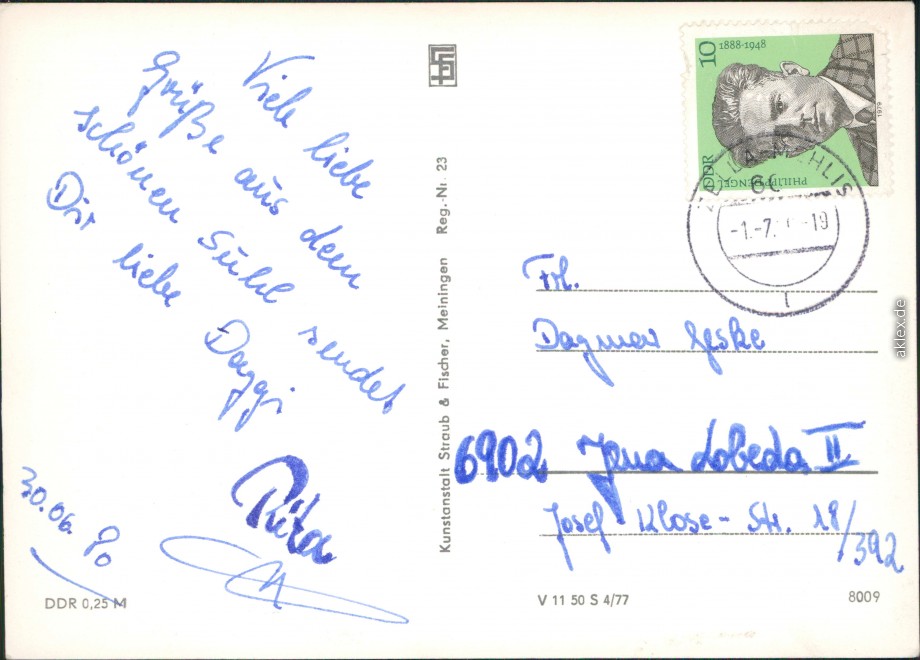 Viele liebe
Grüße aus dem
schönen Suhl sendet
Dir liebe Daggi
Rita
30.06.80
DDR 0,25 M
Kunstanstalt Straub & Fischer, Meiningen Reg.-Nr. 23
10 1888-1948
DDR
PHILIPP DENGEL
1979
ZELLA-MEHLIS
60
-1.-7. -19
Frl.
Dagmar Geske
6902 Jena Lobeda II
Josef-Klose-Str. 18/392
V 11 50 S 4/77
8009
aklex.de